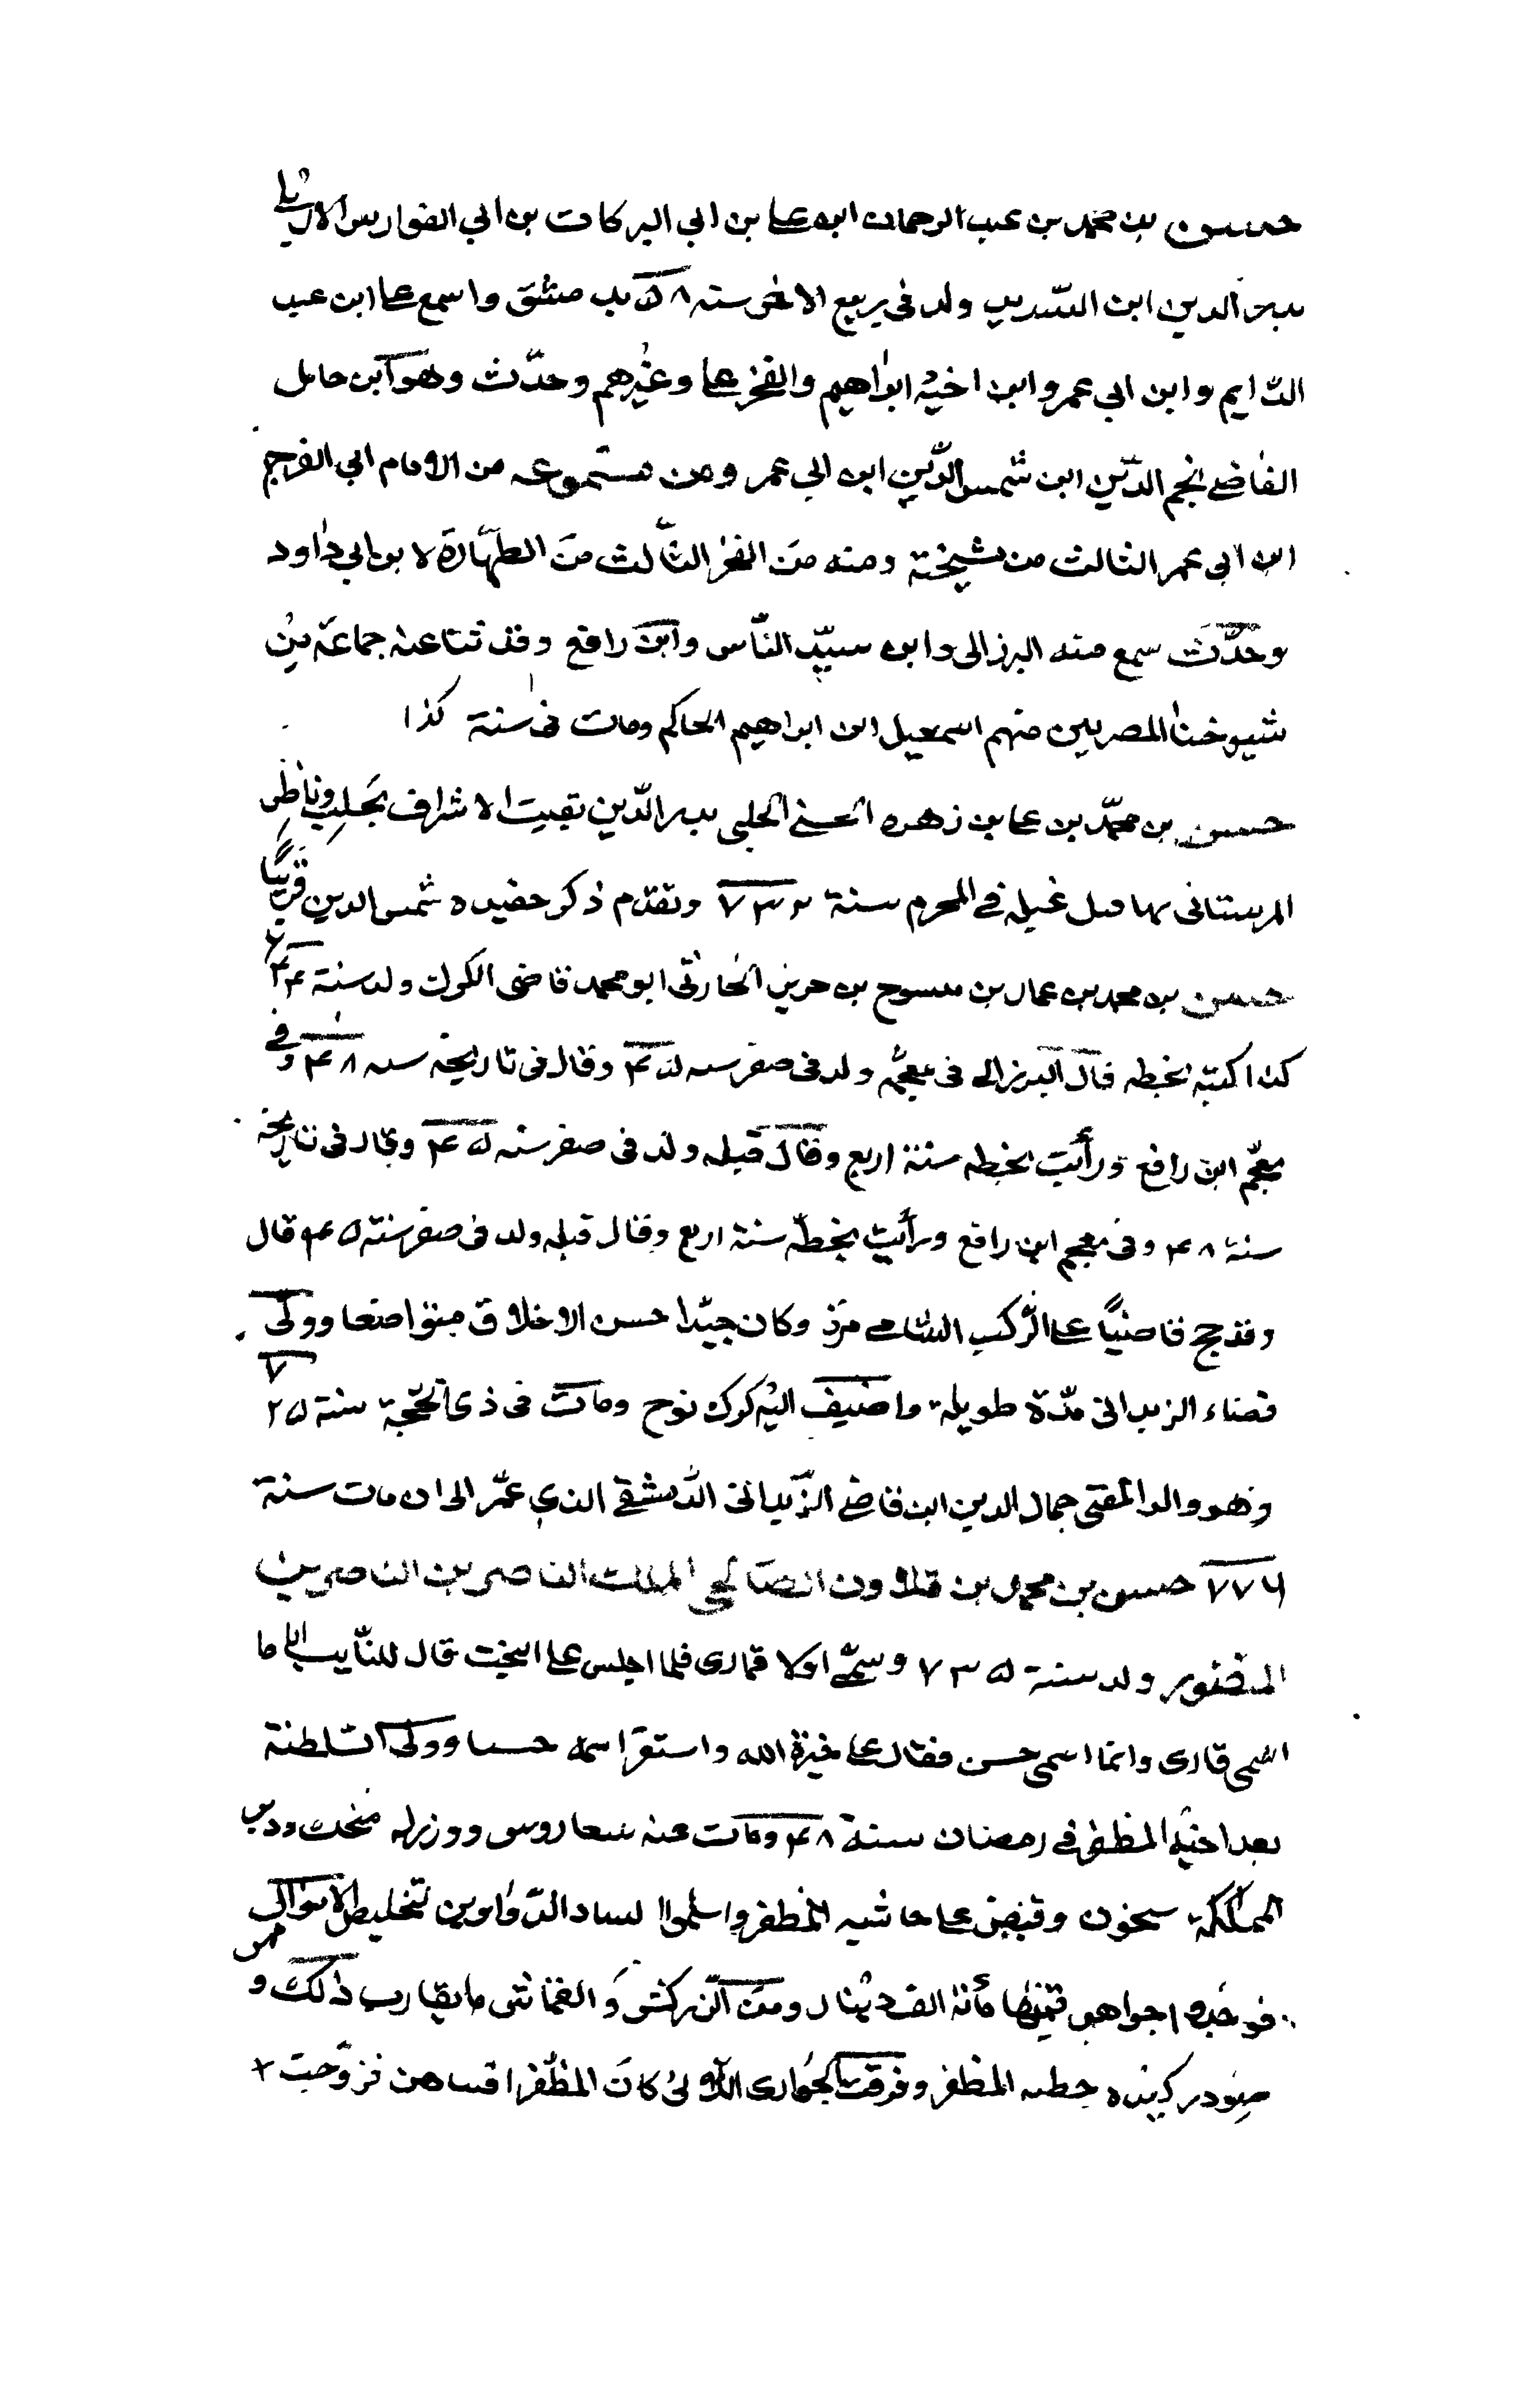 حسن بن محمد بن عبد الرحمان ابن علي بن ابي البركات بن ابي الفوارس الاربلي
بدر الدين ابن السديد ولد في ربيع الاخر سنة ٥٨ بدمشق واسمع علي ابن عبد
الدايم وابن ابي عمر وابن اخيه ابراهيم والفخر علي وغيرهم وحدّث وهو آبن حامل
القاضي نجم الدّين ابن شمس الدّين ابن ابي عمر ومن مسموعه من الامام ابي الفرج
ابن ابي عمر الثالث من مشيخته ومنه من الفخر الثّالث من الطهّارة لابن ابي داود
وحدّث سمع منه البرزالي وابن سيّد النّاس وابن رافع وقد ثنا عنه جماعة من
شيوخنا المصريين منهم اسمعيل ابن ابراهيم الحاكم ومات في سنة كذا
حسن بن محمّد بن علي بن زهره الحسني الحلبي بدر الدّين نقيب الاشراف بحلب وناظر
المرستاني بها قبل غيله في المحرم سنة ٧٣٢ وتقدم ذكر حفيده شمس الدين قريبًا
حسن بن محمد بن عمار بن متوج بن حريز الحارثي ابو محمد قاضي الكرك ولد سنة ٦٤٤
كذا كتبه بخطه قال البرزالي في معجمه ولد في صفر سنه ٤٥ وقال في تاريخه سنه ٤٨ وفي
معجم ابن رافع ورأيت بخطه سنة اربع وقال قبله ولد في صفر سنه ٤٥ وقال في تاريخه
سنة ٤٨ وفي معجم ابن رافع ورأيت بخطّه سنة اربع وقال قبله ولد في صفر سنة ٤٥ قال
وقد حج قاضيًا علي الرّكب الشامي مرة وكان جيّدا حسن الاخلاق متواضعا وولّي
قضاء الزبداني مدّة طويلة واضيف اليه كرك نوح ومات في ذي الحجّة سنة ٧٢٥
وهو والد المفتي جمال الدين ابن قاضي الزّبداني الدّمشقي الذي عمّر الى ان مات سنة
٧٧٦ حسن بن محمد بن قلاون الصالحي الملك الناصر بن الناصر بن
المنصور ولد سنة ٧٣٥ وسمّي اولا قماري فلما اجلس علي التخت قال للنّايب يابا ما
اسمي قماري وانما اسمي حسن فقال علي خيرة الله واستقر اسمه حسنا وولي السّلطنة
بعد اخيه المظفر في رمضان سنة ٤٨ ومات عنه بيبغا روس ووزر له منجك ودبر
المملكة شيخون وقبض علي حاشيه المظفر واسلموا لشاد الدّواوين لتخليص الاموال
فوجدوا جواهر قيمتها مأئة الف دينار ومن الزركش والقماش ما يقارب ذلك و
صودر كيده حظيه المظفر وفرقت الجواري اللاتي كان المظفّر اقتناهن فزوّجت